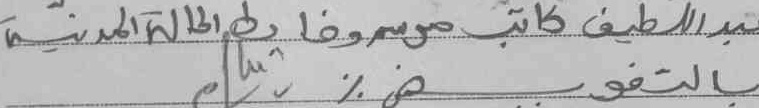 عبد اللطيف كاتب موسوفا رط الحالة المدنية
بالتفويض ٪